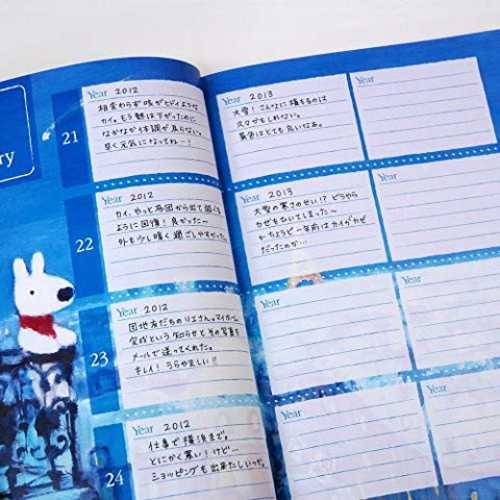 ry
21
Year 2012
相変わらず咳がヒドイような
カイ。もう熱は下がったのに
なかなか体調が戻らない。
早く元気になってねー!
Year 2013
大雪!こんなに積もるのは
久々かもしれない。
景色はとても良いなぁ。
Year
22
Year 2012
カイ、やっと布団から出て動ける
ように回復!良かった〜
外も少し暖く過ごしやすかった。
Year 2013
大雪の寒さのせい!?どうやら
カゼをひいてしまった〜
ちょうど一年前はカイがカゼ
だったのか…
Year
23
Year 2012
団地友だちのリエさん。マイホーム
完成という知らせとその写真を
メールで送ってくれた。
キレイ!うらやましい!!
Year
Year
24
Year 2012
仕事で横浜まで。
とにかく寒い!けど…
ショッピングも出来たしいっか。
Year
Year